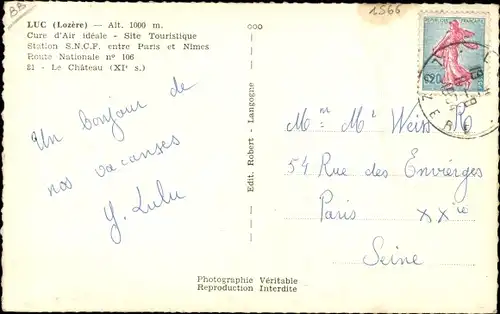 BB
LUC (Lozère) — Alt. 1000 m.
Cure d'Air idéale - Site Touristique
Station S.N.C.F. entre Paris et Nîmes
Route Nationale n° 106
81 - Le Château (XIᵉ s.)
Un bonjour de
nos vacanses
Y. Lulu
Edit. Robert - Langogne
Photographie Véritable
Reproduction Interdite
1566
0,20
Mᵐ Mʳ Weiss R
54 Rue des Envierges
Paris XXⁱᵉ
Seine